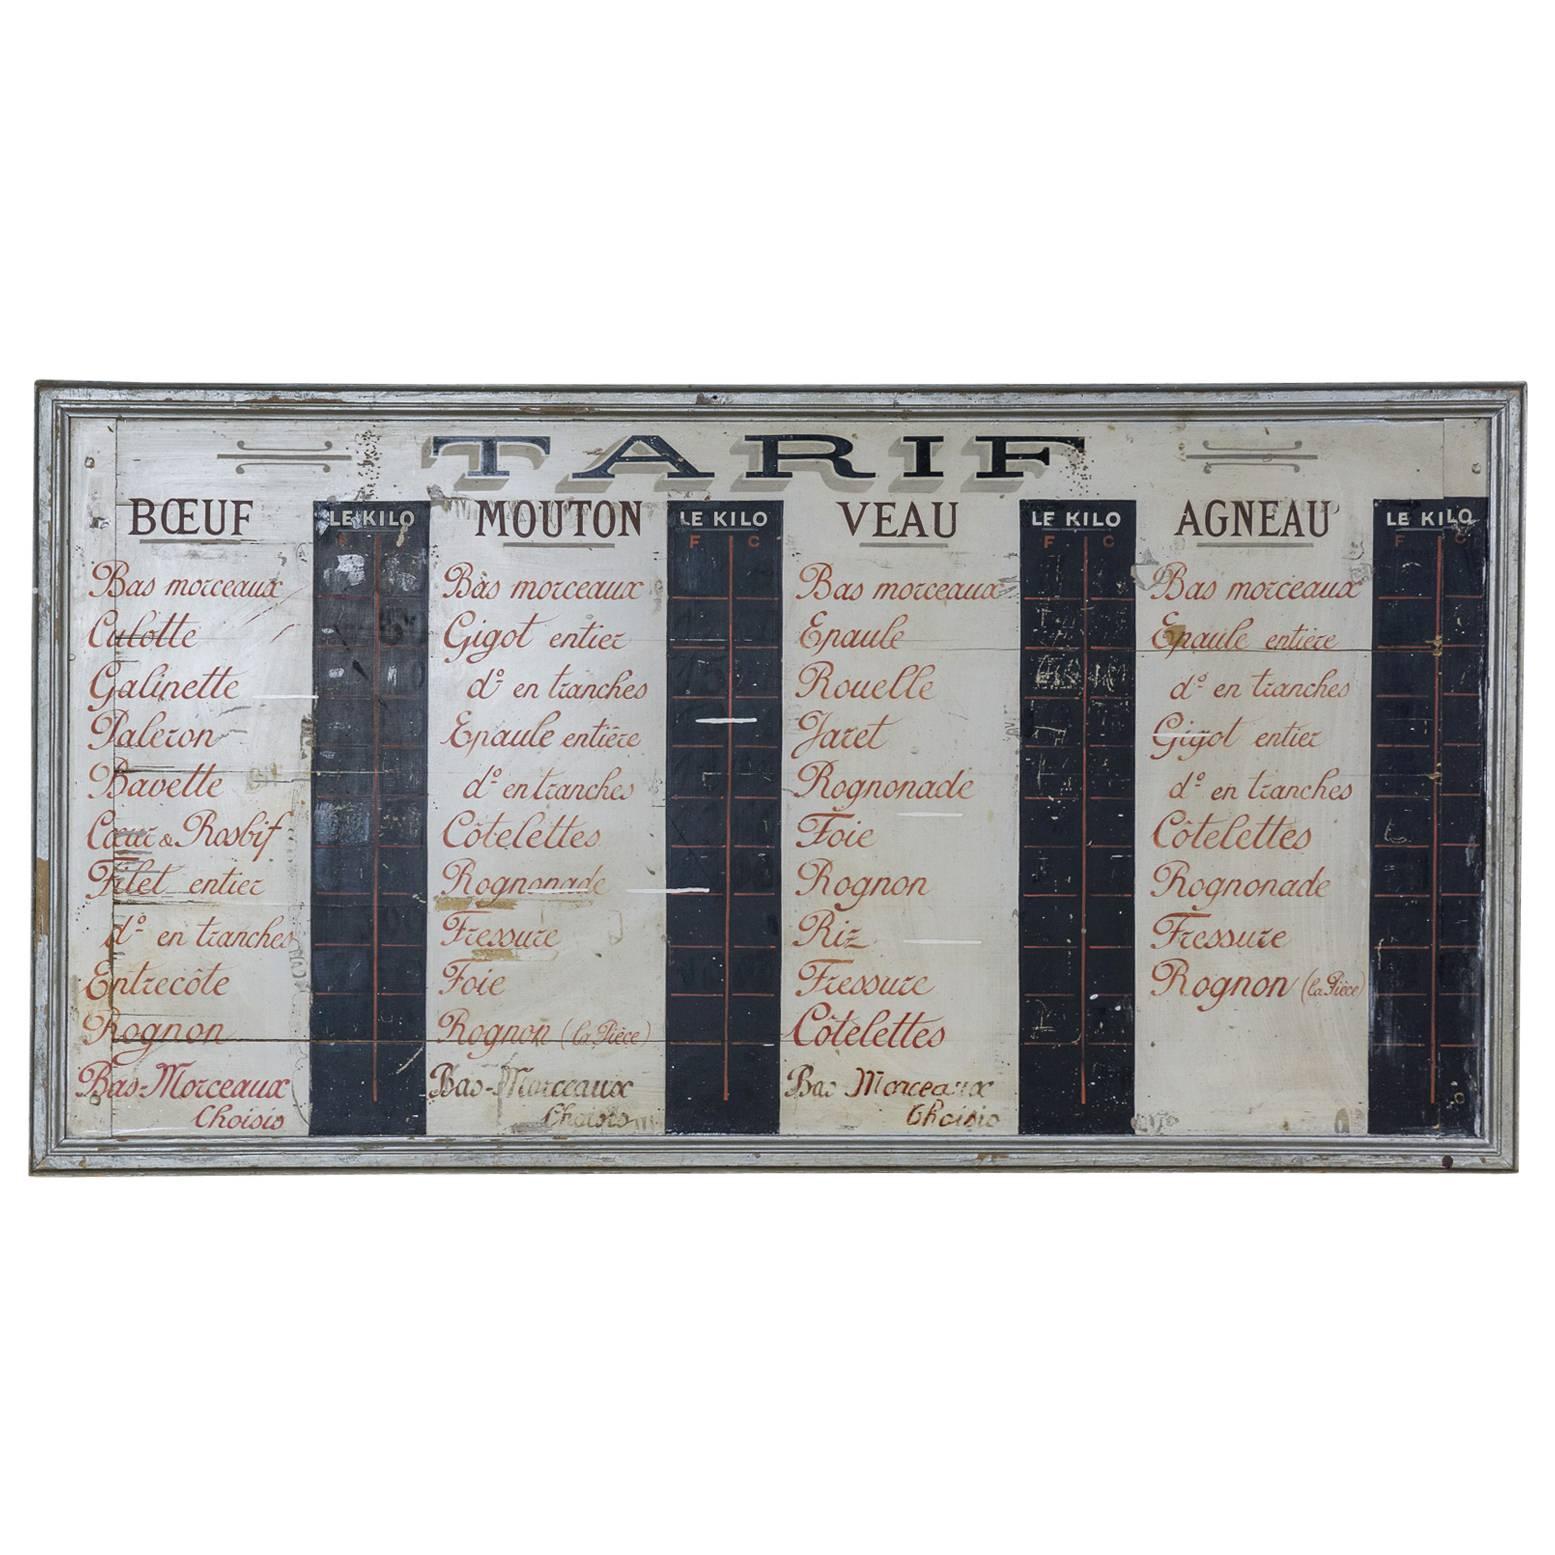 TARIF
BŒUF
LE KILO
Bas morceaux
Culotte
Galinette
Paleron
Bavette
Cœur & Rosbif
Filet entier
dº en tranches
Entrecôte
Rognon
Bas-Morceaux
Choisis
MOUTON
LE KILO
F C
Bas morceaux
Gigot entier
dº en tranches
Epaule entière
dº en tranches
Côtelettes
Rognonade
Fressure
Foie
Rognon (la Pièce)
Bas-Morceaux
Choisis
VEAU
LE KILO
F C
Bas morceaux
Epaule
Rouelle
Jaret
Rognonade
Foie
Rognon
Riz
Fressure
Côtelettes
Bas Morceaux
Choisis
AGNEAU
LE KILO
F C
Bas morceaux
Epaule entière
dº en tranches
Gigot entier
dº en tranches
Côtelettes
Rognonade
Fressure
Rognon (la Pièce)